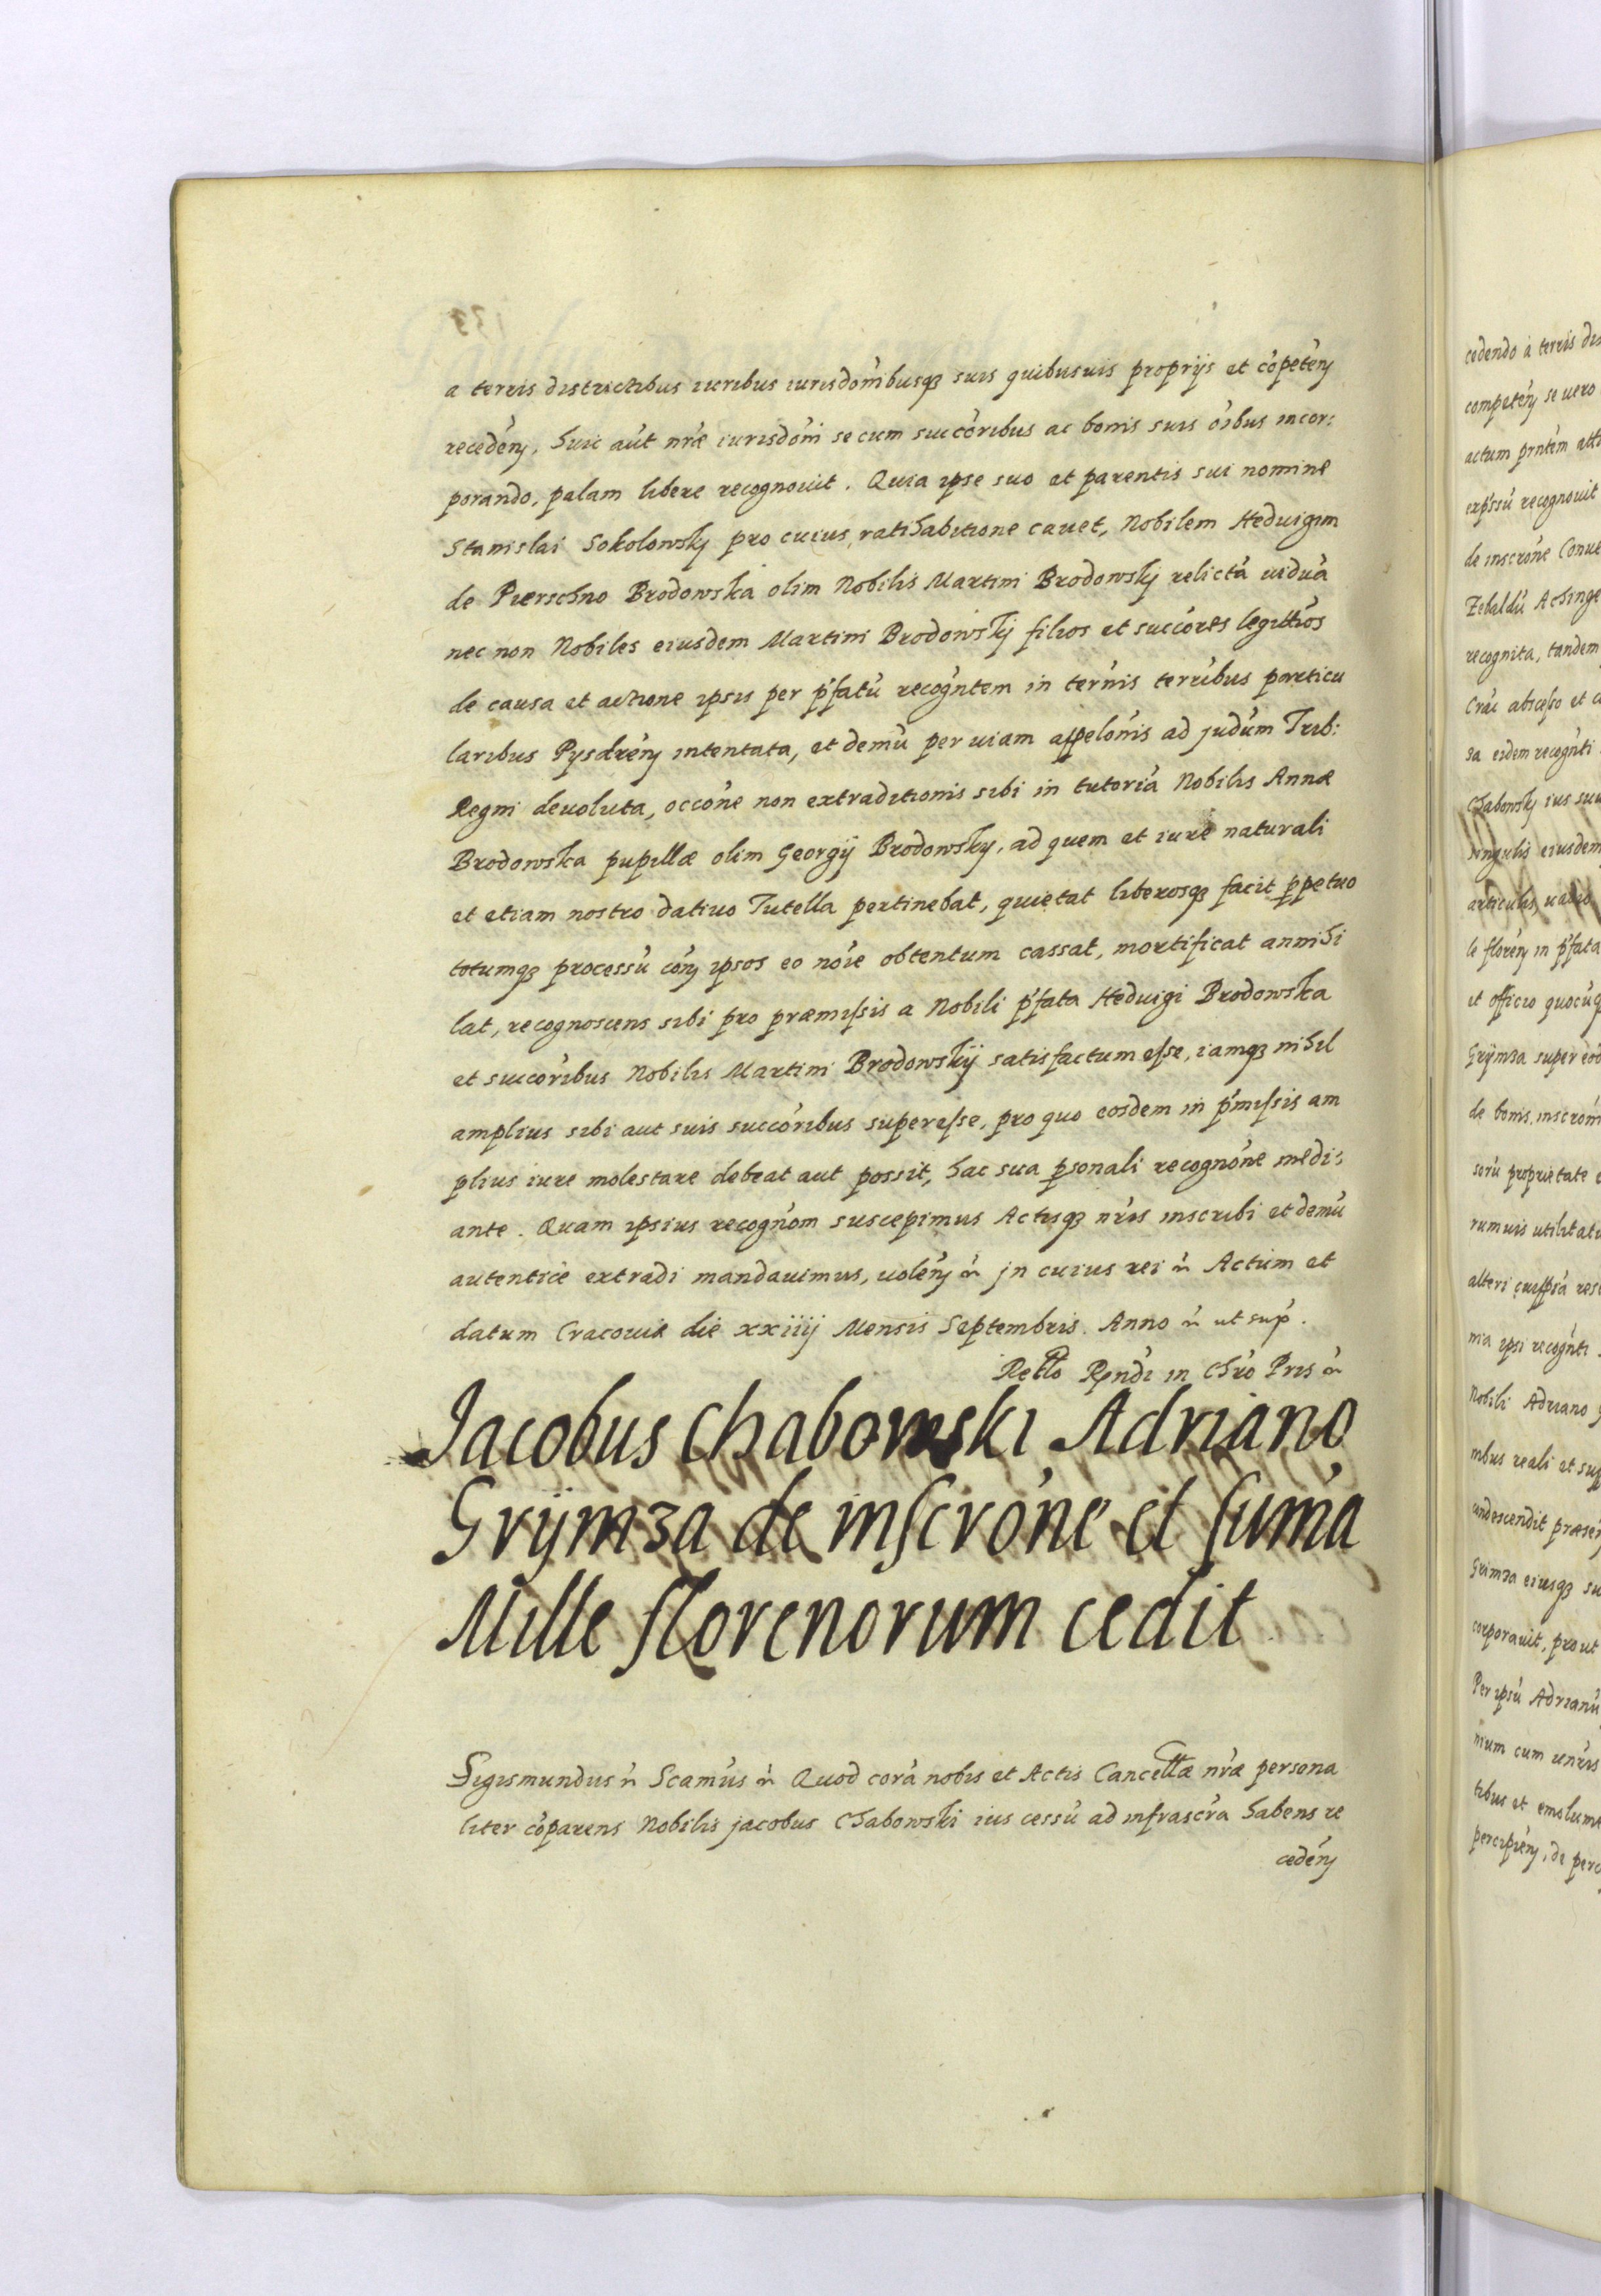 a terris districtibus iuribus iurisdōnibusqꝫ suis quibusuis proprijs et cōpeteń
recedeń, huic aūt nrǣ iurisdōni se cum succōribus ac bonis suis ōibus incor:
porando, palam libere recognouit. Quia ipse suo et parentis sui nomine
Stanislai Sokolowskÿ pro cuius ratihabitione cauet, Nobilem Heduigim
de Pierschno Brodowska olim Nobilis Martini Brodowskÿ relictā viduā
nec non Nobiles eiusdem Martini Brodowskÿ filios et succōres legittīos
de causa et actione ipsis per p̄fatū recogn̄tem in termīs terrībus particu
laribus Pysdreń intentata, et demū per uiam appelōnis ad judūm Trib:
Regni deuoluta, occōne non extraditionis sibi in tutoriā Nobilis Annæ
Brodowska pupillæ olim Georgÿ Brodowskÿ, ad quem et iure naturali
et etiam nostro datiuo Tutella pertinebat, quietat liberosqꝫ facit ꝑpetuo
totumqꝫ processū coń ipsos eo nōie obtentum cassat, mortificat annihi
lat, recognoscens sibi pro præmissis a Nobili p̄fata Heduigi Brodowska
et succōribus Nobilis Martini Brodowskÿ satisfactum esse, iamqꝫ nihil
amplius sibi aut suis succōribus superesse, pro quo eosdem in p̄missis am
plius iure molestare debeat aut possit, hac sua ꝑsonali recognōne medi:
ante. Quam ipsius recognōm suscepimus Actisqꝫ nrīs inscribi et demū
autentice extradi mandauimus, uoleń ꝛc̄ jn cuius rei ꝛc̄ Actum et
datum Cracouiæ die xxiiij Mensis Septembris. Anno ꝛc̄ ut sup̄.
Retło Rn̄di in Chrō Pris ꝛc̄
Jacobus Chabowski Adriano
Grÿmza de inscrōne et sumā
Mille florenorum cedit
Sigismundus ꝛc̄ Scamūs ꝛc̄ Quod corā nobis et Actis Cancellæ nrǣ persona
liter cōparens Nobilis jacobus Chabowski ius cessū ad infrascrā habens re
cedeń
cedendo a terris
competeń se uero
actum prn̄tem
exp̄ssū recognouit
de inscrōne
Zebaldū
recognita, tandem
Crāc abscesso et
sa eidem recogn̄ti
Chabowskÿ ius
singulis eiusdem
articulis,
le floreń in p̄fata
et officio
Grÿmza super
de bonis
sorū proprietate
rumuis
alteri cuipiā
nia ipsi recogn̄ti
Nobili Adriano
mbus reali et
condescendit
Grimza eiusqꝫ
corporauit, prout
Per ipsū Adrianū
nium cum
tibus et
percipień, de